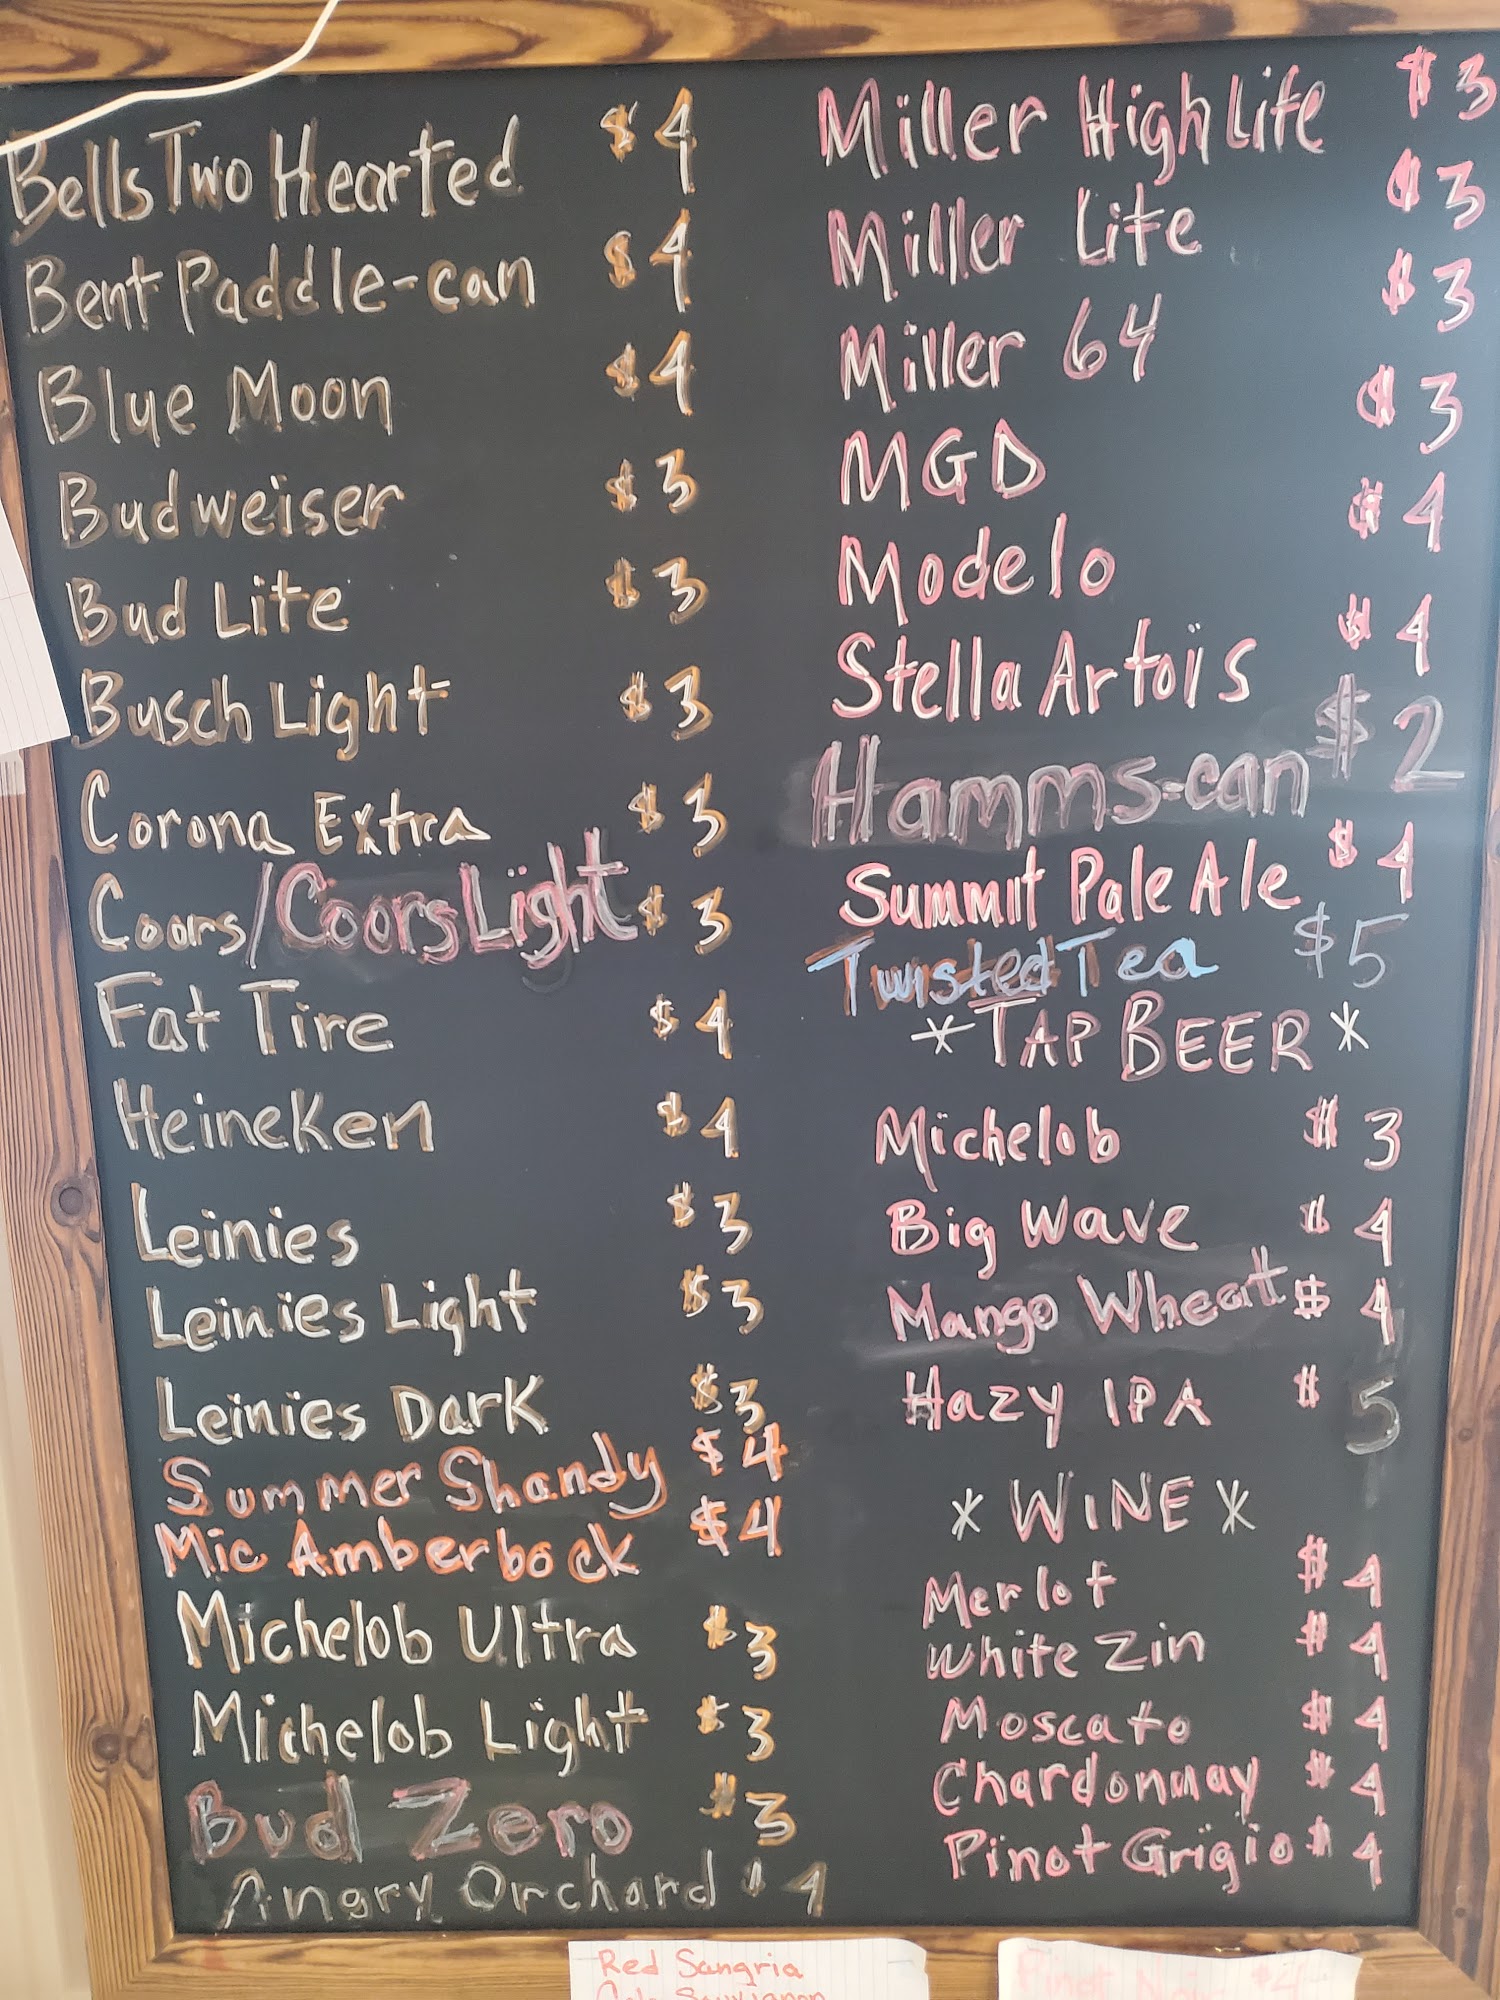 Bells Two Hearted $4
Bent Paddle-can $4
Blue Moon $4
Budweiser $3
Bud Lite $3
Busch Light $3
Corona Extra $3
Coors/Coors Light $3
Fat Tire $4
Heineken $4
Leinies $3
Leinies Light $3
Leinies Dark $3
Summer Shandy $4
Mic Amberbock $4
Michelob Ultra $3
Michelob Light $3
Bud Zero $3
Angry Orchard $4
Miller High Life $3
Miller Lite $3
Miller 64 $3
MGD $3
Modelo $4
Stella Artois $4
Hamms-can $2
Summit Pale Ale $4
Twisted Tea $5
*TAP BEER*
Michelob $3
Big Wave $4
Mango Wheat $4
Hazy IPA $5
*WINE*
Merlot $4
White Zin $4
Moscato $4
Chardonnay $4
Pinot Grigio $4
Red Sangria
Sauvignon
Pinot $4